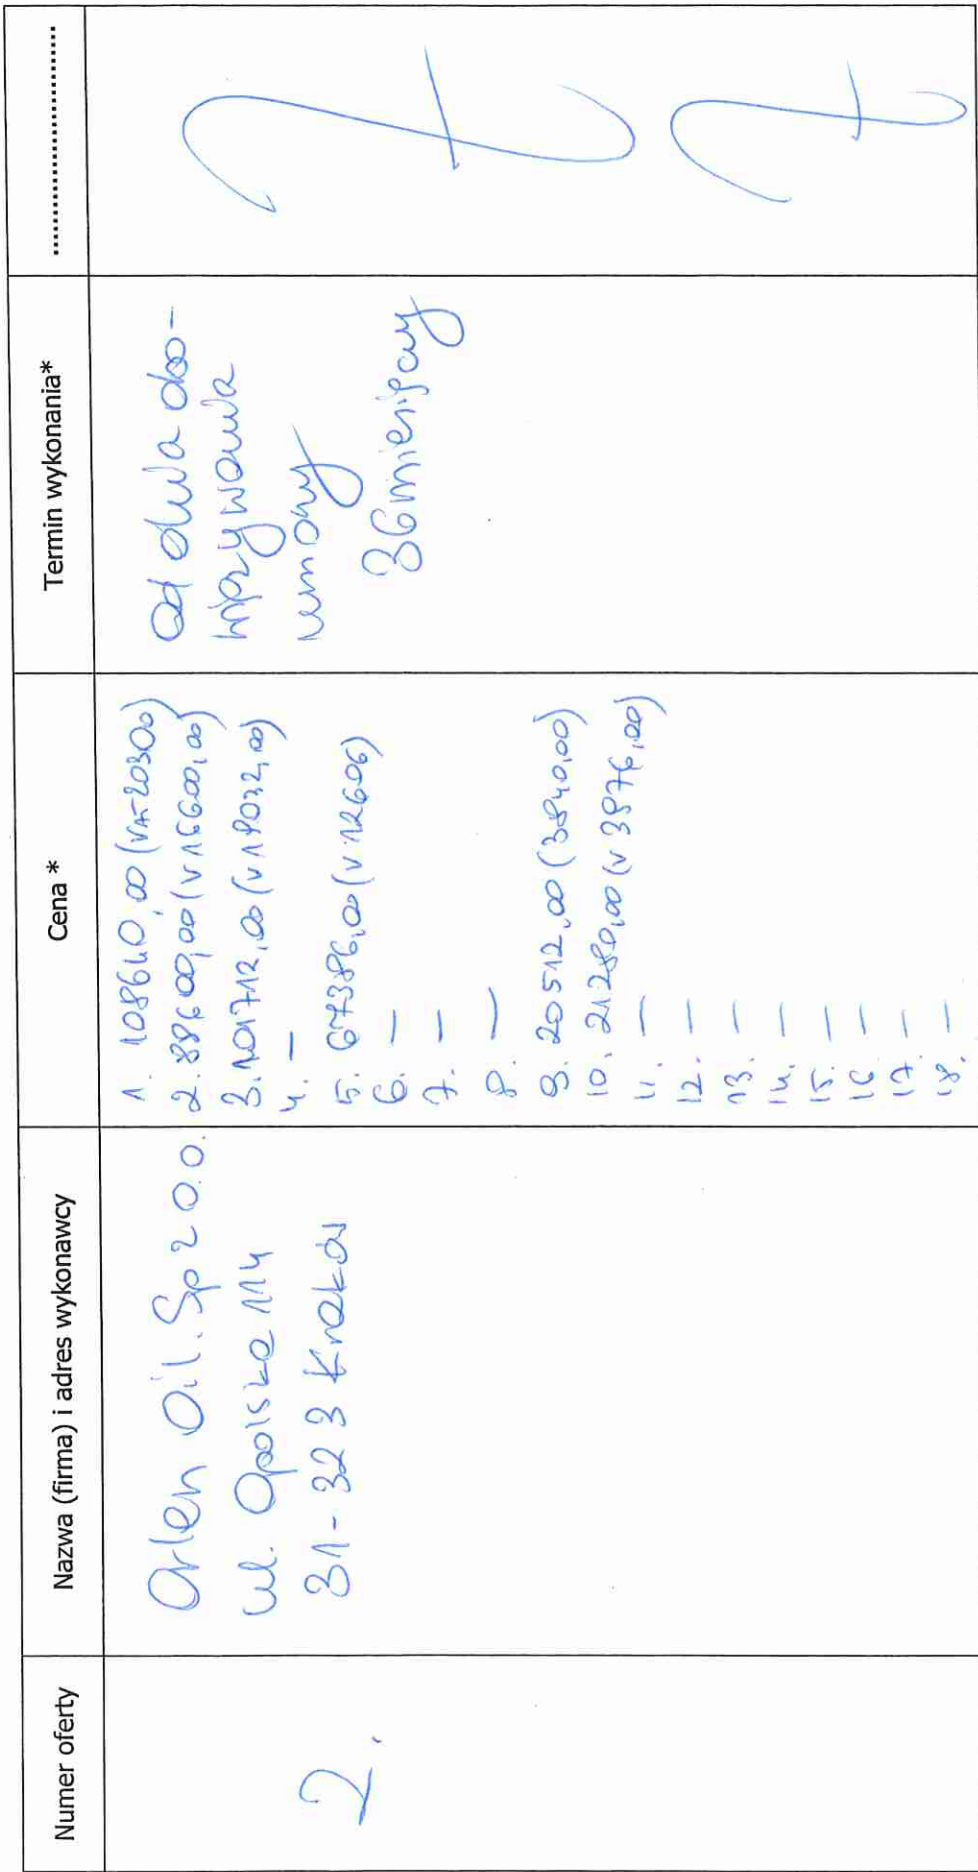 Numer oferty
Nazwa (firma) i adres wykonawcy
Cena *
Termin wykonania*
........................................
2.
Orlen Oil. Sp z o.o.
ul. Opolska 114
31-323 Kraków
1. 108640,00 (VAT-20300)
2. 88600,00 (v 16600,00)
3. 101712,00 (v 19032,00)
4. —
5. 67386,00 (v 12606)
6. —
7. —
8. —
9. 20512,00 (3840,00)
10. 21280,00 (v 3976,00)
11. —
12. —
13. —
14. —
15. —
16. —
17. —
18. —
od dnia obo-
wiązywania
umowy
36 miesięcy